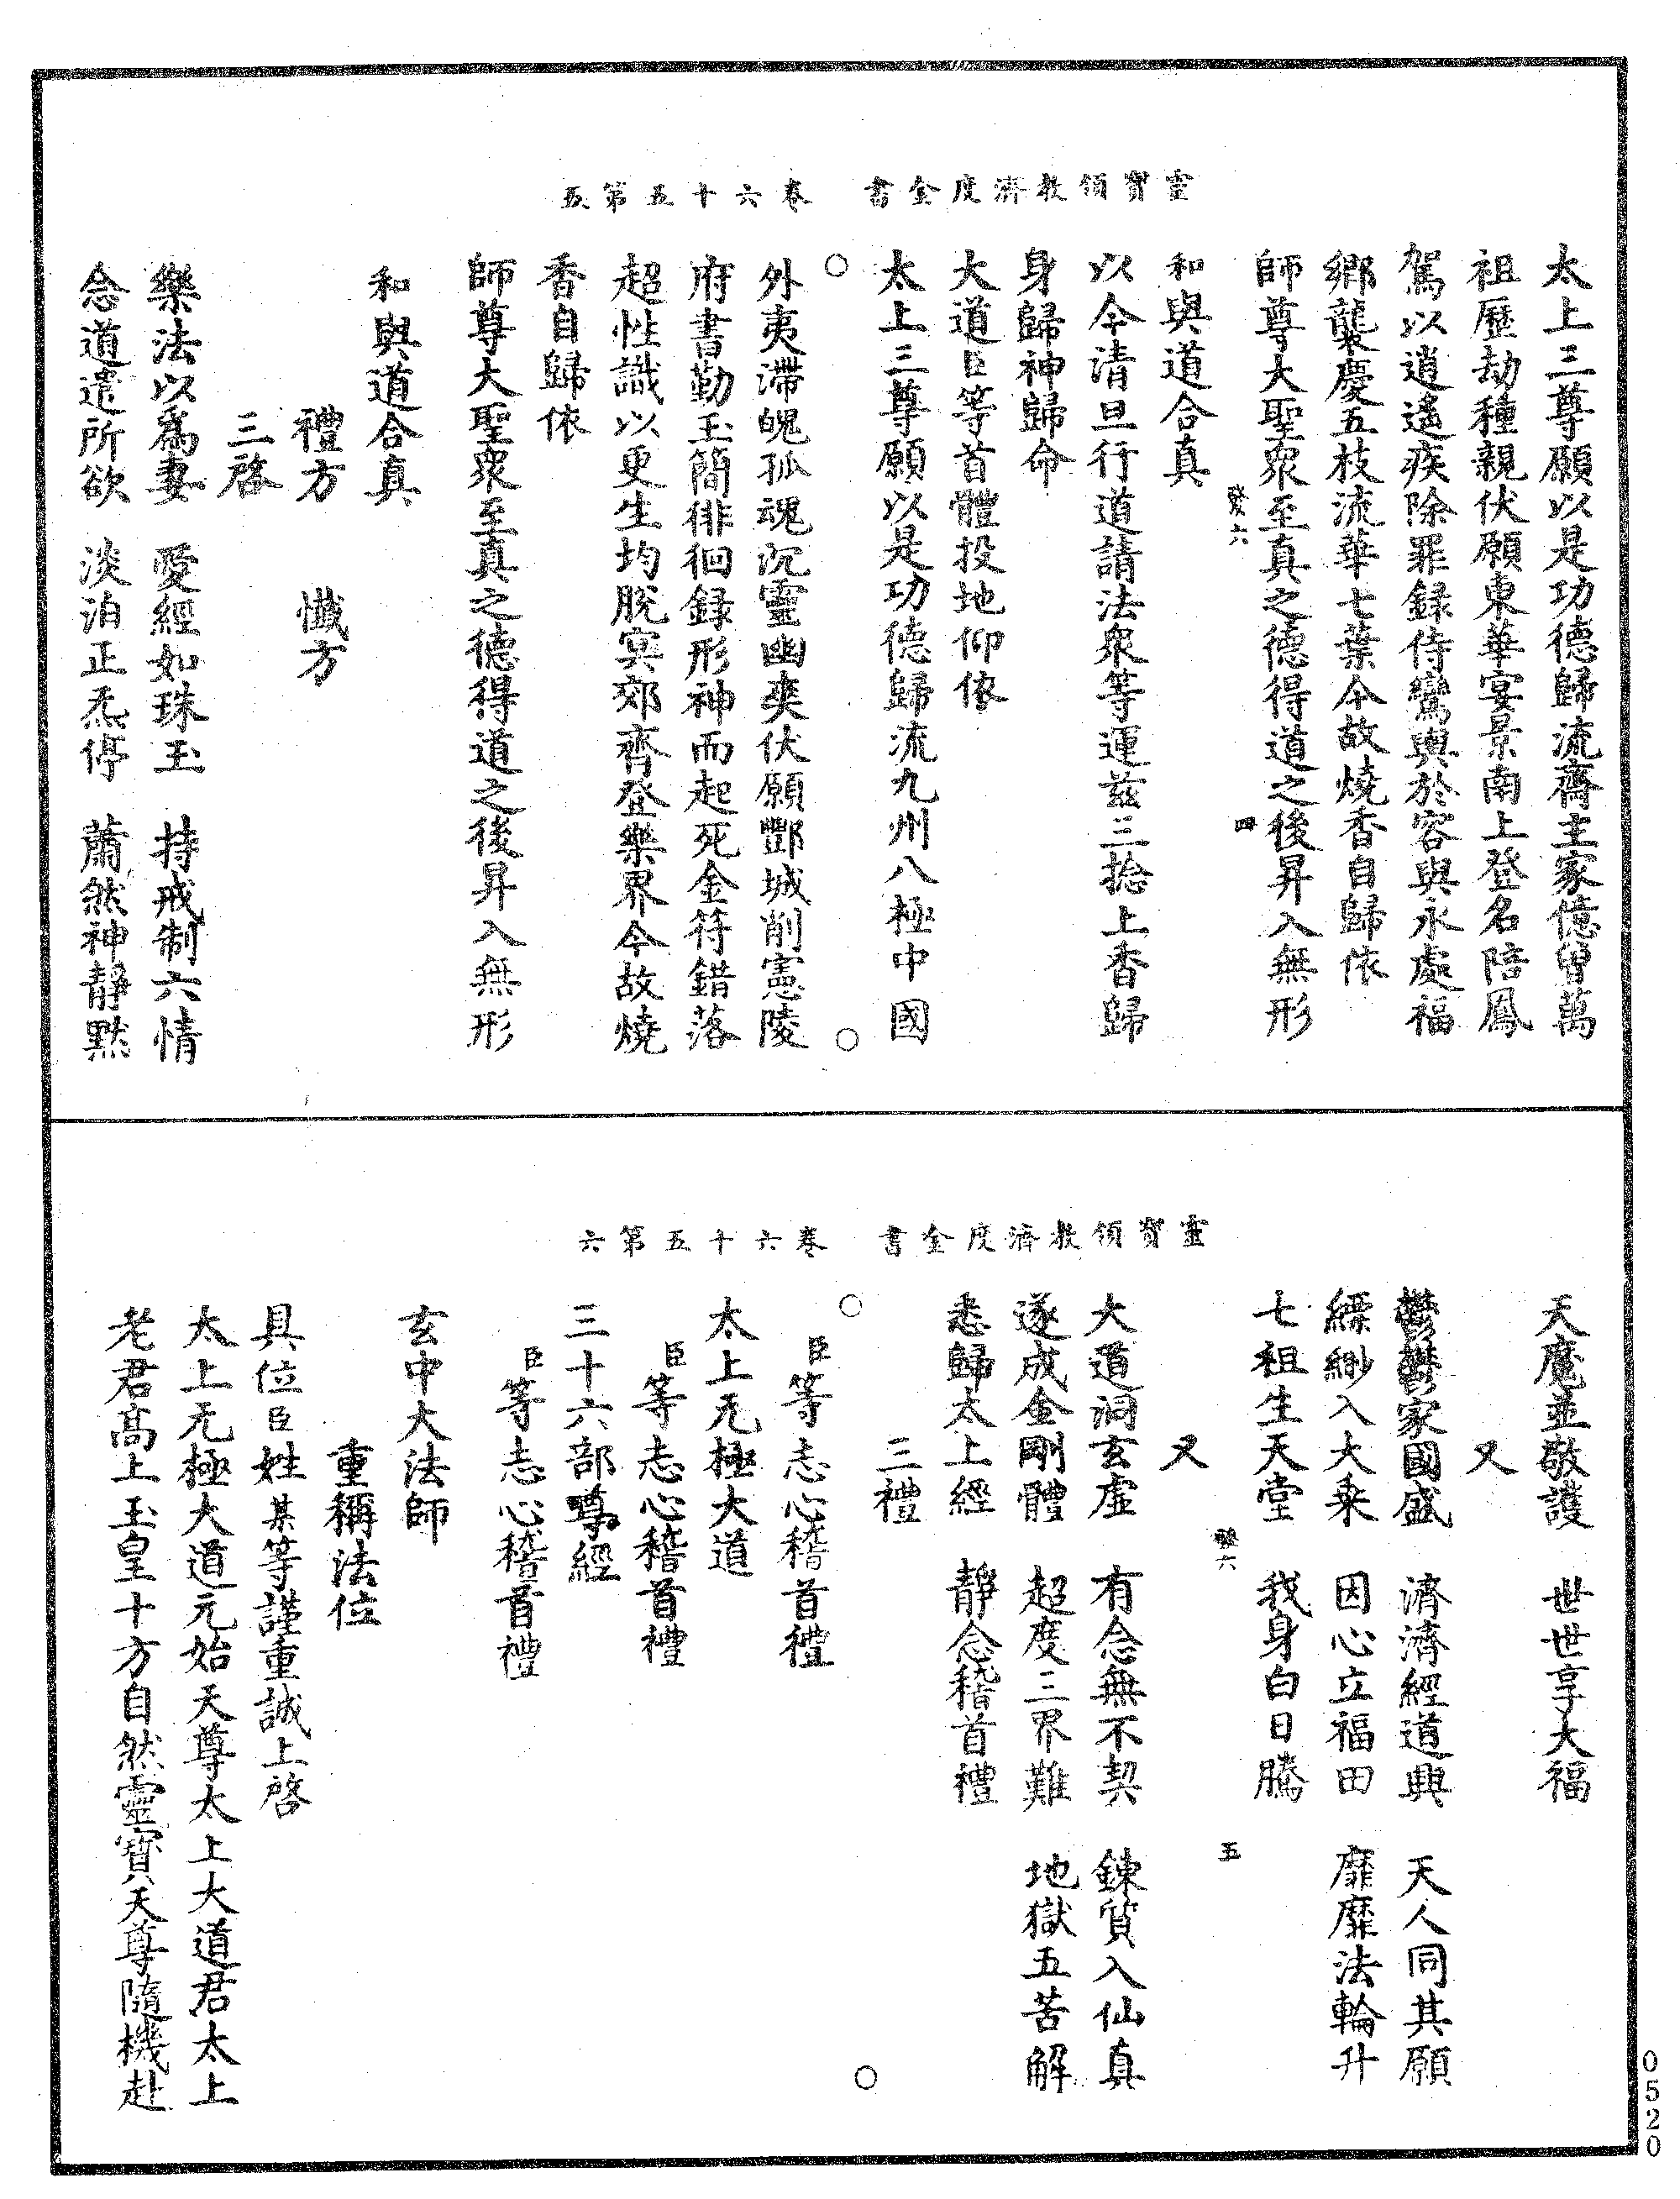 靈寶領教濟度金書 卷六十五第五
太上三尊願以是功德歸流齋主家億曾萬
祖歷劫種親伏願東華宴景南上登名陪鳳
駕以逍遙疾除罪録侍鸞輿於容與永處福
鄉襲慶五枝流華七葉今故燒香自歸依
師尊大聖衆至真之德得道之後昇入無形
六 四
和與道合真
以今清旦行道請法衆等運茲三捻上香歸
身歸神歸命
大道臣等首體投地仰依
太上三尊願以是功德歸流九州八極中國
外夷滯魄孤魂沉靈幽爽伏願酆城削憲陵
府書勤玉簡徘徊録形神而起死金符錯落
超性識以更生均脫冥郊齊登樂界今故燒
香自歸依
師尊大聖衆至真之德得道之後昇入無形
和與道合真
禮方 懺方
三啓
樂法以爲妻 愛經如珠玉 持戒制六情
念道遣所欲 淡泊正炁停 蕭然神靜默
靈寶領教濟度金書 卷六十五第六
天魔並敬護 世世享大福
又
鬱鬱家國盛 濟濟經道興 天人同其願
縹緲入大乗 因心立福田 靡靡法輪升
七祖生天堂 我身白日騰
六 五
又
大道洞玄虛 有念無不契 鍊質入仙真
遂成金剛體 超度三界難 地獄五苦解
悉歸太上經 靜念稽首禮
三禮
臣等志心稽首禮
太上无極大道
臣等志心稽首禮
三十六部尊經
臣等志心稽首禮
玄中大法師
重稱法位
具位臣姓某等謹重誠上啓
太上无極大道元始天尊太上大道君太上
老君高上玉皇十方自然靈寶天尊隨機赴
0520